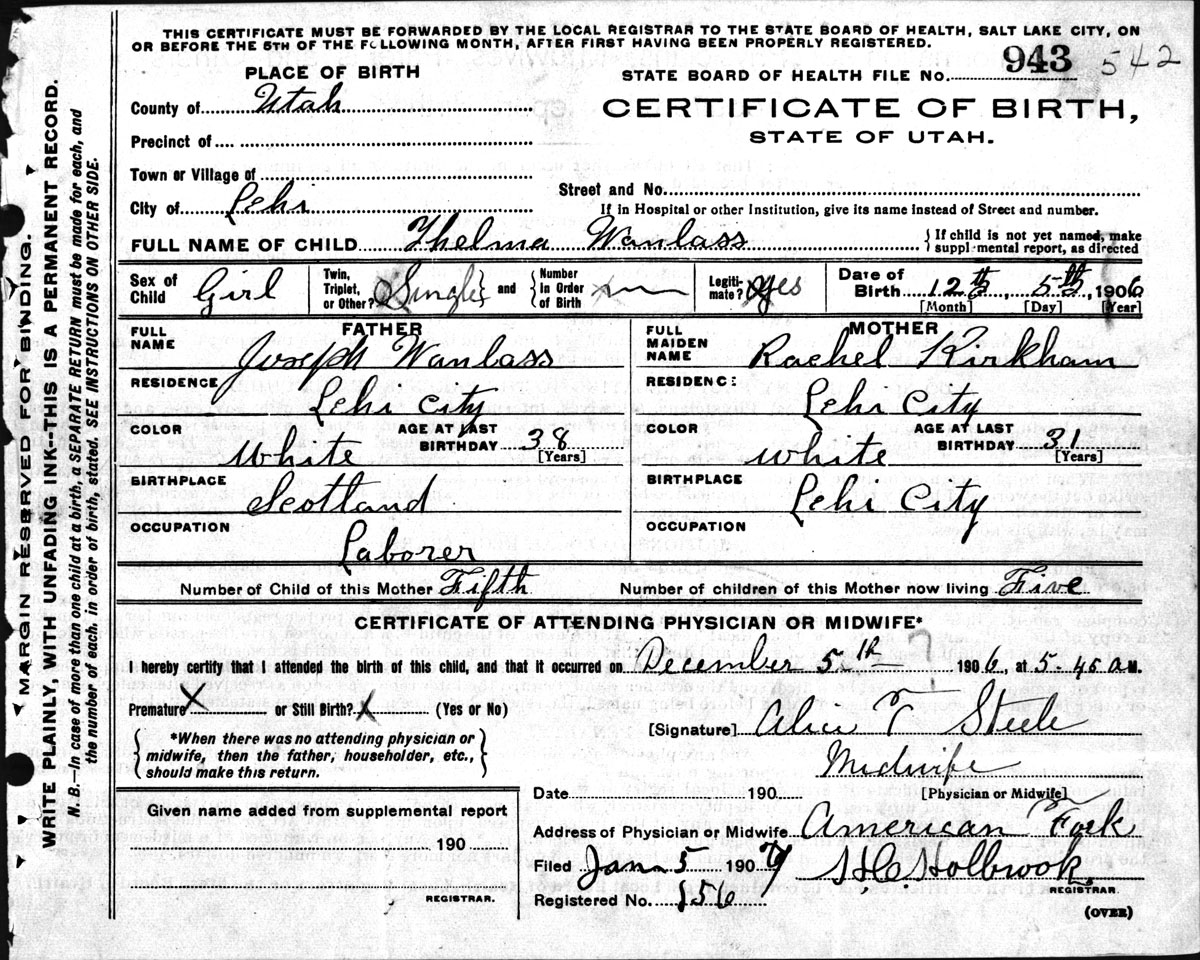 THIS CERTIFICATE MUST BE FORWARDED BY THE LOCAL REGISTRAR TO THE STATE BOARD OF HEALTH, SALT LAKE CITY, ON
OR BEFORE THE 5TH OF THE FOLLOWING MONTH, AFTER FIRST HAVING BEEN PROPERLY REGISTERED.
PLACE OF BIRTH
STATE BOARD OF HEALTH FILE NO. 943 542
County of Utah
CERTIFICATE OF BIRTH,
STATE OF UTAH.
Precinct of
Town or Village of
Street and No.
City of Lehi
If in Hospital or other Institution, give its name instead of Street and number.
FULL NAME OF CHILD Thelma Wanlass
If child is not yet named, make
supplemental report, as directed
Sex of Child Girl
Twin, Triplet, or Other? Single and Number In Order of Birth
Legitimate? yes
Date of Birth 12th, 5th, 1906
[Month] [Day] [Year]
FATHER
FULL NAME Joseph Wanlass
RESIDENCE Lehi City
COLOR White
AGE AT LAST BIRTHDAY 38 [Years]
BIRTHPLACE Scotland
OCCUPATION Laborer
MOTHER
FULL MAIDEN NAME Rachel Kirkham
RESIDENC: Lehi City
COLOR White
AGE AT LAST BIRTHDAY 31 [Years]
BIRTHPLACE Lehi City
OCCUPATION
Number of Child of this Mother Fifth
Number of children of this Mother now living Five
CERTIFICATE OF ATTENDING PHYSICIAN OR MIDWIFE*
I hereby certify that I attended the birth of this child, and that it occurred on December 5th 1906, at 5-45 a M.
Premature X or Still Birth? X (Yes or No)
[Signature] Alice T Steele
*When there was no attending physician or
midwife, then the father, householder, etc.,
should make this return.
Midwife
[Physician or Midwife]
Date 190
Given name added from supplemental report
190
REGISTRAR.
Address of Physician or Midwife American Fork
Filed Jan 5 1907 H C Holbrook,
REGISTRAR.
Registered No. 156
(OVER)
MARGIN RESERVED FOR BINDING.
WRITE PLAINLY, WITH UNFADING INK--THIS IS A PERMANENT RECORD.
N. B.--In case of more than one child at a birth, a SEPARATE RETURN must be made for each, and
the number of each, in order of birth, stated. SEE INSTRUCTIONS ON OTHER SIDE.